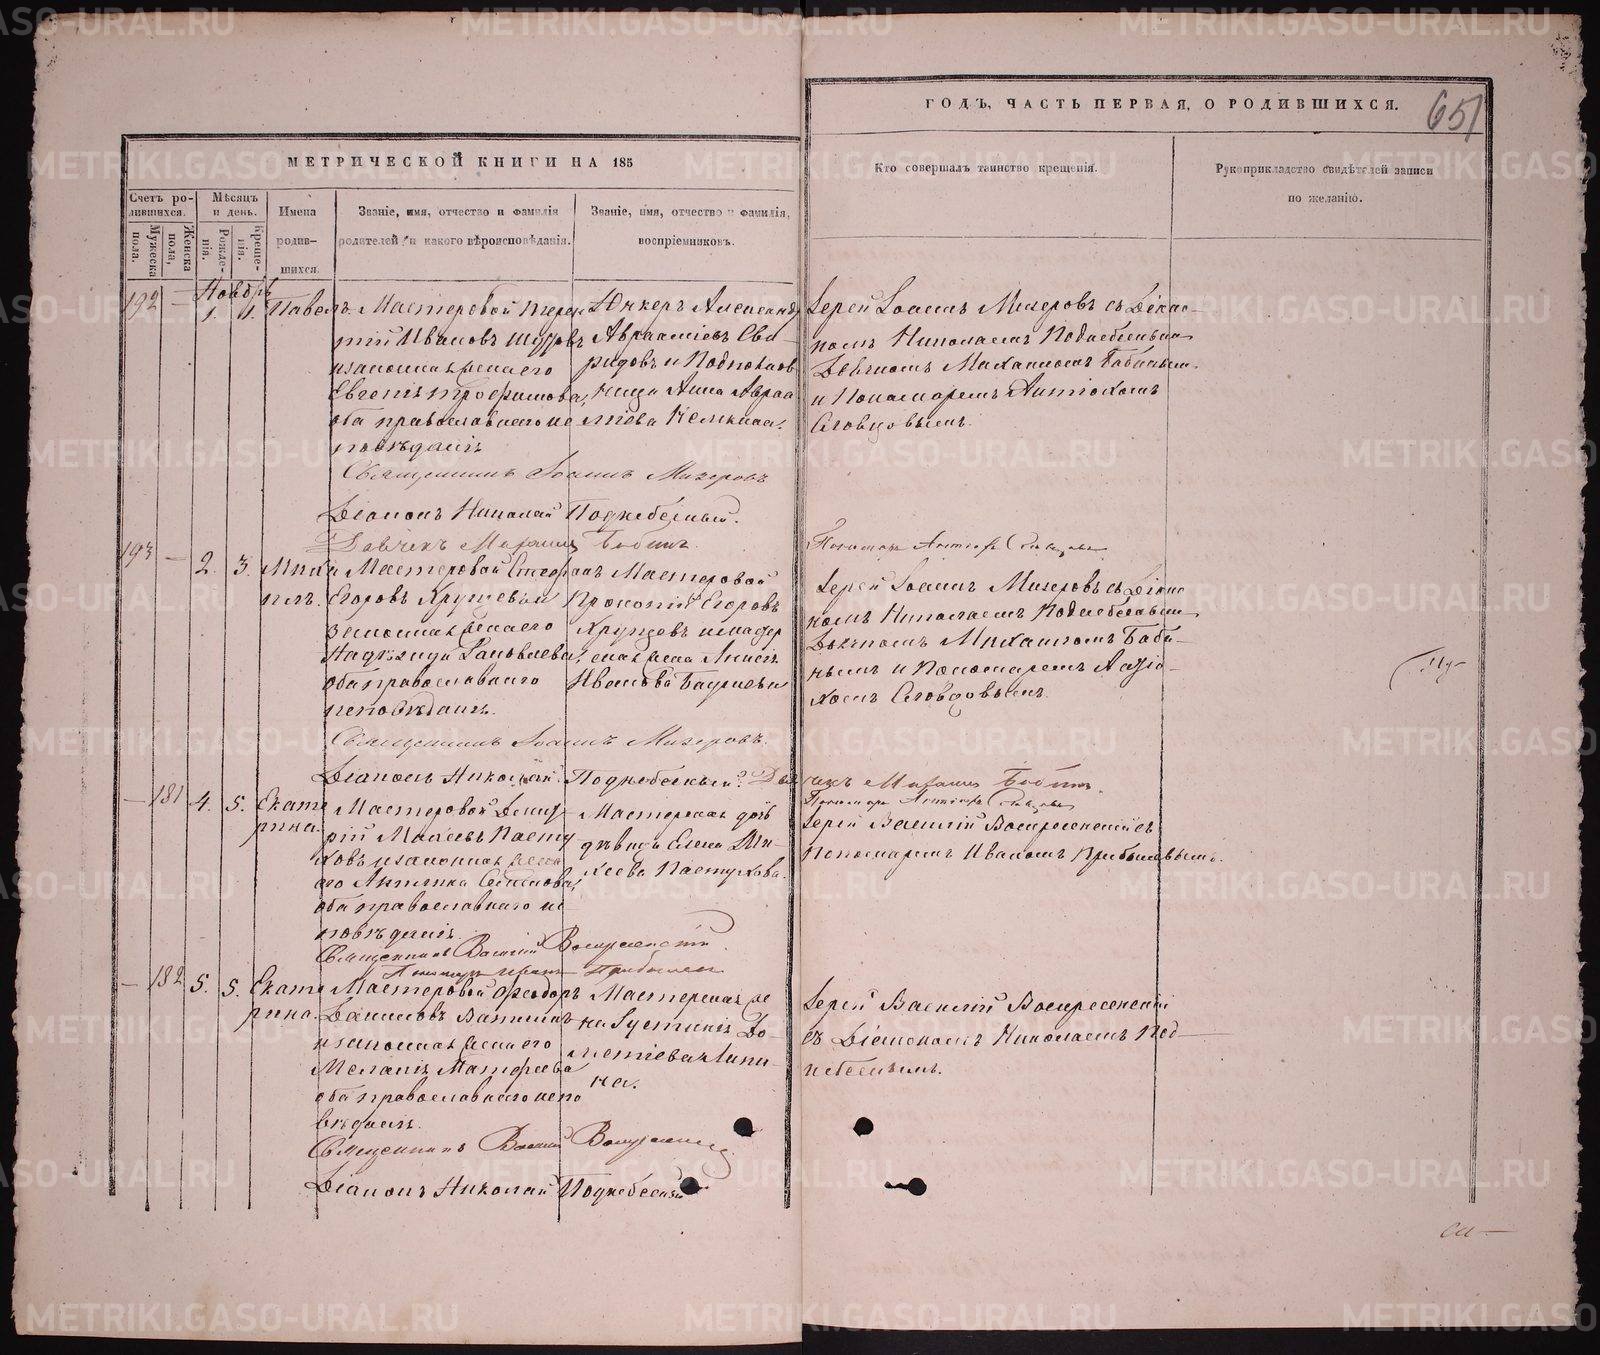 МЕТРИЧЕСКОЙ КНИГИ НА 185
ГОДЪ, ЧАСТЬ ПЕРВАЯ, О РОДИВШИХСЯ.
651
Счетъ ро-
дившихся.
Мужеска
пола.
Женска
пола,
Мѣсяцъ
и день.
Рожде-
нія.
Креще-
нія.
Имена
родив-
шихся.
Званіе, имя, отчество и фамилія
родителей, и какого вѣроисповѣданія.
Званіе, имя, отчество и фамилія,
воспріемниковъ.
Кто совершалъ таинство крещенія.
Рукоприкладство свидѣтелей записи
по желанію.
Ноябрь
192 — 1. 1.
Павелъ
Мастеровой
Ивановъ
и законная жена его
Евгенія Трофимова,
оба православнаго ис
повѣданія
Юнкеръ Александръ
Аврааміевъ Сви-
ридовъ и
Анна Авраа
міева
Іерей Іоаннъ Мизеровъ съ Діако-
номъ Николаемъ Поднебеснымъ
Дьячкомъ Михаиломъ Бабинымъ
и Пономаремъ Антіохомъ
Словцовымъ.
Священникъ Іоаннъ Мизеровъ
Діаконъ Николай Поднебесный.
Дьячекъ Михаилъ Бабинъ
Пономарь Антіохъ Словцовъ
193 — 2. 3.
Миха
илъ.
Мастеровой Стефанъ
Егоровъ
законная жена его
Надежда Яковлева,
оба православнаго
исповѣданія.
Мастеровой
Прокопій Егоровъ
жена Анисія
Иванова
Іерей Іоаннъ Мизеровъ съ Діако
номъ Николаемъ Поднебеснымъ
Дьячкомъ Михаиломъ Баби-
нымъ и Пономаремъ Антіо-
хомъ Словцовымъ.
Священникъ Іоаннъ Мизеровъ.
Діаконъ Николай Поднебесный. Дьячекъ Михаилъ Бабинъ.
Пономарь Антіохъ Словцовъ
— 181 4. 5.
Екате
рина.
Мастеровой Дмит
рій Пасту
ховъ и законная жена
его Семенова,
оба православнаго ис
повѣданія.
Мастерская дочь
дѣвица Елена Ми-
хеева Пастухова.
Іерей Василій Воскресенскій съ
Пономаремъ Иваномъ Прибылевымъ.
Священникъ Василій Воскресенскій.
Пономарь Иванъ Прибылевъ
— 182 5. 5.
Екате
рина.
Мастеровой Ѳеодоръ
Даниловъ
и законная жена его
Меланія Матфеева
оба православнаго испо
вѣданія.
Мастерская же
на Іустинія До-
метіева
на.
Іерей Василій Воскресенскій
съ Діакономъ Николаемъ Под-
небеснымъ.
Священникъ Василій Воскресенскій
Діаконъ Николай Поднебесный
METRIKI.GASO-URAL.RU